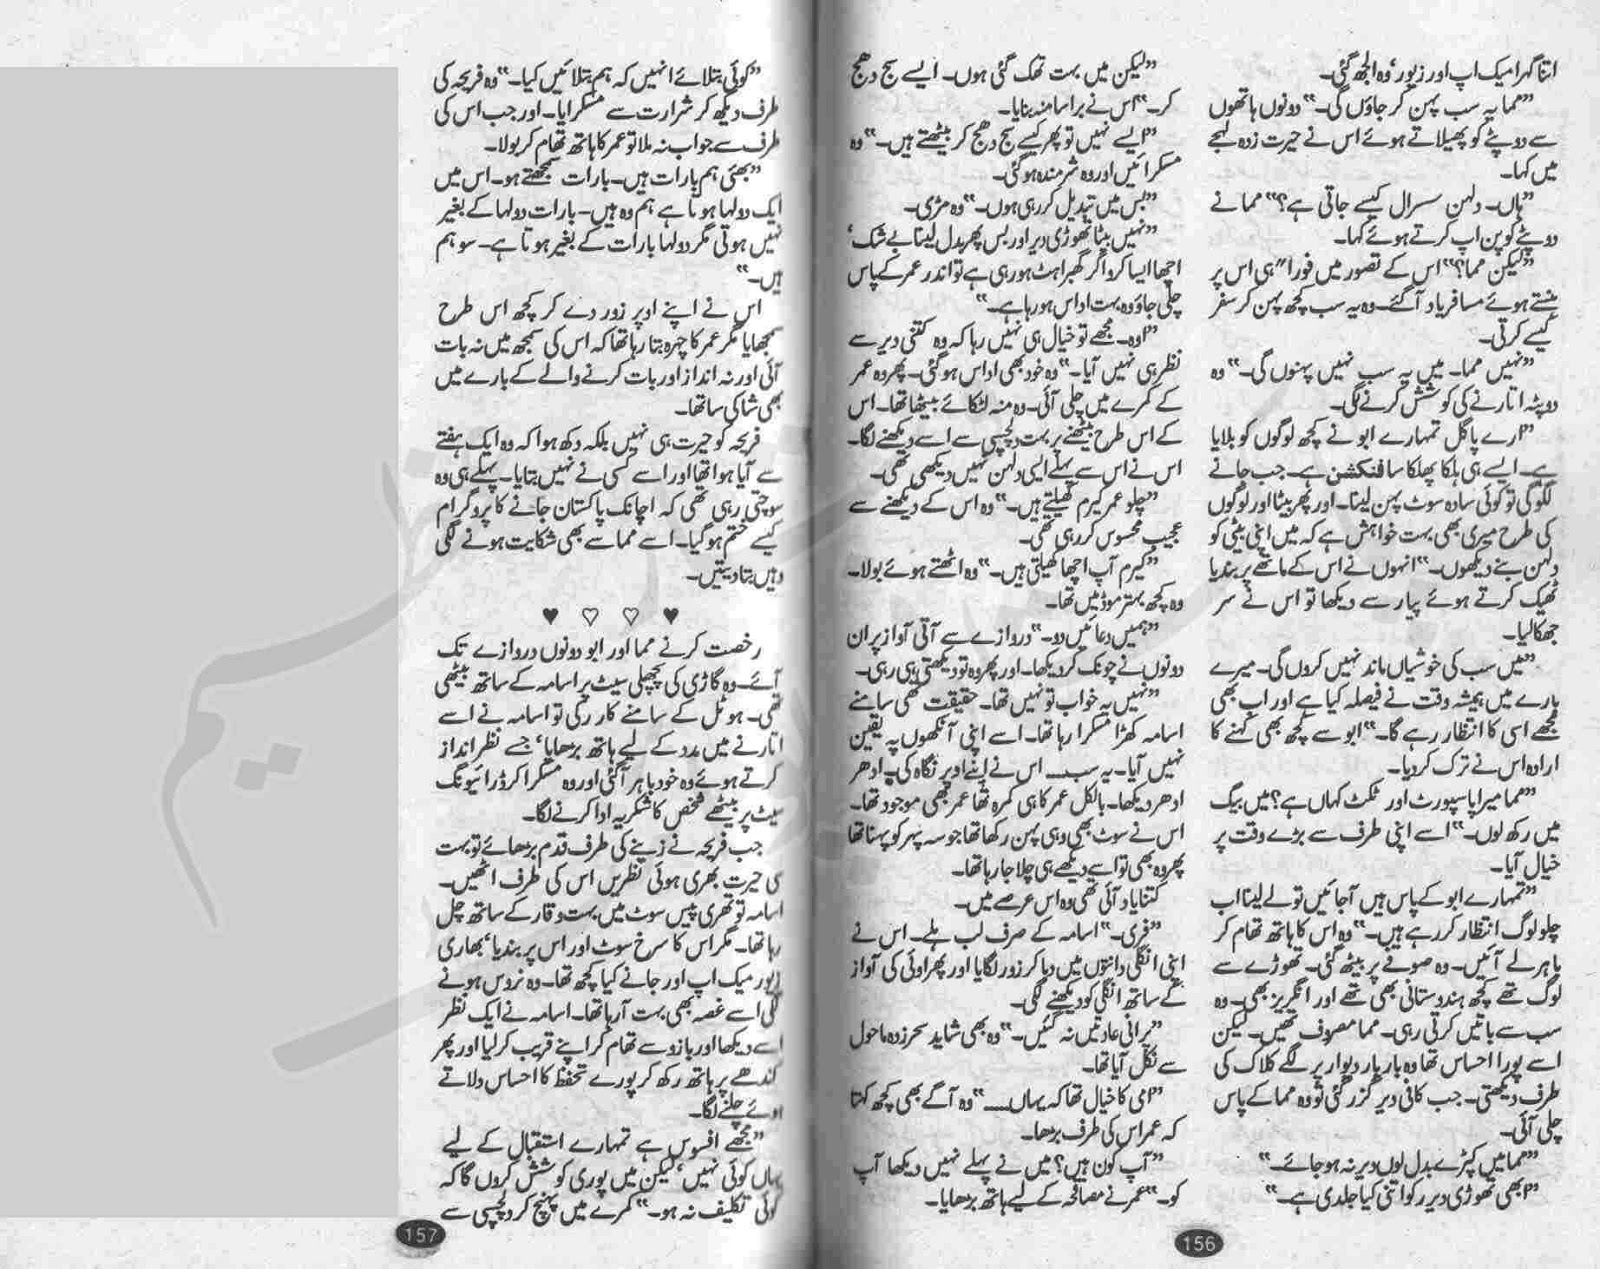 اتنا گہرا میک اپ اور زیور‘ وہ الجھ گئی۔
”مما یہ سب پہن کر جاؤں گی۔“ دونوں ہاتھوں
سے دوپٹے کو پھیلاتے ہوئے اس نے حیرت زدہ لہجے
میں کہا۔
”ہاں۔ دلہن سسرال کیسے جاتی ہے؟“ ممانے
دوپٹے کو پن اپ کرتے ہوئے کہا۔
”لیکن مما؟“ اس کے تصور میں فورا“ ہی اس پر
ہنستے ہوئے مسافر یاد آگئے۔ وہ یہ سب کچھ پہن کر سفر
کیسے کرتی۔
”نہیں مما۔ میں یہ سب نہیں پہنوں گی۔“ وہ
دوپٹہ اتارنے کی کوشش کرنے لگی۔
”ارے پاگل تمہارے ابو نے کچھ لوگوں کو بلایا
ہے۔ ایسے ہی ہلکا پھلکا سا فنکشن ہے۔ جب جانے
لگو گی تو کوئی سادہ سوٹ پہن لینا۔ اور پھر بیٹا اور لوگوں
کی طرح میری بھی بہت خواہش ہے کہ میں اپنی بیٹی کو
دلہن بنے دیکھوں۔“ انہوں نے اس کے ماتھے پر بندیا
ٹھیک کرتے ہوئے پیار سے دیکھا تو اس نے سر
جھکالیا۔
”میں سب کی خوشیاں ماند نہیں کروں گی۔ میرے
بارے میں ہمیشہ وقت نے فیصلہ کیا ہے اور اب بھی
مجھے اسی کا انتظار رہے گا۔“ ابو سے کچھ بھی کہنے کا
ارادہ اس نے ترک کردیا۔
”مما میرا پاسپورٹ اور ٹکٹ کہاں ہے؟ میں بیگ
میں رکھ لوں۔“ اسے اپنی طرف سے بڑے وقت پر
خیال آیا۔
”تمہارے ابو کے پاس ہیں آجائیں تو لے لینا اب
چلو لوگ انتظار کر رہے ہیں۔“ وہ اس کا ہاتھ تھام کر
باہر لے آئیں۔ وہ صوفے پر بیٹھ گئی۔ تھوڑے سے
لوگ تھے کچھ ہندوستانی بھی تھے اور انگریز بھی۔ وہ
سب سے باتیں کرتی رہی۔ مما مصروف تھیں۔ لیکن
اسے پورا احساس تھا وہ بار بار دیوار پر لگے کلاک کی
طرف دیکھتی۔ جب کافی دیر گزر گئی تو وہ مما کے پاس
چلی آئی۔
”مما میں کپڑے بدل لوں دیر نہ ہوجائے۔“
”ابھی تھوڑی دیر رکو اتنی کیا جلدی ہے۔“
”لیکن میں بہت تھک گئی ہوں۔ ایسے سج دھج
کر۔“ اس نے برا سامنہ بنایا۔
”ایسے نہیں تو پھر کیسے سج دھج کر بیٹھتے ہیں۔“ وہ
مسکرائیں اور وہ شرمندہ ہوگئی۔
”بس میں تبدیل کر رہی ہوں۔“ وہ مڑی۔
”نہیں بیٹا تھوڑی دیر اور بس پھر بدل لینا بے شک‘
اچھا ایسا کرو اگر گھبراہٹ ہو رہی ہے تو اندر عمر کے پاس
چلی جاؤ وہ بہت اداس ہو رہا ہے۔“
”اوہ۔ مجھے تو خیال ہی نہیں رہا کہ وہ کتنی دیر سے
نظر ہی نہیں آیا۔“ وہ خود بھی اداس ہوگئی۔ پھر وہ عمر
کے کمرے میں چلی آئی۔ وہ منہ لٹکائے بیٹھا تھا۔ اس
کے اس طرح بیٹھنے پر بہت دلچسپی سے اسے دیکھنے لگا۔
اس نے اس سے پہلے ایسی دلہن نہیں دیکھی تھی۔
”چلو عمر کیرم کھیلتے ہیں۔“ وہ اس کے دیکھنے سے
عجیب محسوس کر رہی تھی۔
”کیرم آپ اچھا کھیلتی ہیں۔“ وہ اٹھتے ہوئے بولا۔
وہ کچھ بہتر موڈ میں تھا۔
”ہمیں دعائیں دو۔“ دروازے سے آتی آواز پر ان
دونوں نے چونک کر دیکھا۔ اور پھر وہ تو دیکھتی ہی رہی۔
”نہیں یہ خواب تو نہیں تھا۔ حقیقت تھی سامنے
اسامہ کھڑا مسکرا رہا تھا۔ اسے اپنی آنکھوں پہ یقین
نہیں آیا۔ یہ سب۔۔۔ اس نے اپنے اوپر نگاہ کی۔ ادھر
ادھر دیکھا۔ بالکل عمر کا ہی کمرہ تھا عمر بھی موجود تھا۔
اس نے سوٹ بھی وہی پہن رکھا تھا جو سہ پہر کو پہنا تھا
پھر وہ بھی تو اسے دیکھے ہی چلا جا رہا تھا۔
کتنا یاد آئی تھی وہ اس عرصے میں۔
”فری۔“ اسامہ کے صرف لب ہلے۔ اس نے
اپنی انگلی دانتوں میں دبا کر زور لگایا اور پھر اوئی کی آواز
کے ساتھ انگلی کو دیکھنے لگی۔
”پرانی عادتیں نہ گئیں۔“ وہ بھی شاید سحر زدہ ماحول
سے نکل آیا تھا۔
”امی کا خیال تھا کہ یہاں۔۔۔“ وہ آگے بھی کچھ کہتا
کہ عمر اس کی طرف بڑھا۔
”آپ کون ہیں؟ میں نے پہلے نہیں دیکھا آپ
کو۔“ عمر نے مصافحہ کے لیے ہاتھ بڑھایا۔
156
”کوئی بتلائے انہیں کہ ہم بتلائیں کیا۔“ وہ فریحہ کی
طرف دیکھ کر شرارت سے مسکرایا۔ اور جب اس کی
طرف سے جواب نہ ملا تو عمر کا ہاتھ تھام کر بولا۔
”بھئی ہم بارات ہیں۔ بارات سمجھتے ہو۔ اس میں
ایک دولہا ہوتا ہے ہم وہ ہیں۔ بارات دولہا کے بغیر
نہیں ہوتی مگر دولہا بارات کے بغیر ہوتا ہے۔ سو ہم
ہیں۔“
اس نے اپنے اوپر زور دے کر کچھ اس طرح
سمجھایا مگر عمر کا چہرہ بتا رہا تھا کہ اس کی سمجھ میں نہ بات
آئی اور نہ انداز اور بات کرنے والے کے بارے میں
بھی شاکی سا تھا۔
فریحہ کو حیرت ہی نہیں بلکہ دکھ ہوا کہ وہ ایک ہفتے
سے آیا ہوا تھا اور اسے کسی نے نہیں بتایا۔ پہلے ہی وہ
سوچتی رہی تھی کہ اچانک پاکستان جانے کا پروگرام
کیسے ختم ہوگیا۔ اسے مما سے بھی شکایت ہونے لگی
وہیں بتادیتیں۔
♥ ♡ ♡ ♥
رخصت کرنے مما اور ابو دونوں دروازے تک
آئے۔ وہ گاڑی کی پچھلی سیٹ پر اسامہ کے ساتھ بیٹھی
تھی۔ ہوٹل کے سامنے کار رکی تو اسامہ نے اسے
اتارنے میں مدد کے لیے ہاتھ بڑھایا‘ جسے نظر انداز
کرتے ہوئے وہ خود باہر آگئی اور وہ مسکرا کر ڈرائیونگ
سیٹ پر بیٹھے شخص کا شکریہ ادا کرنے لگا۔
جب فریحہ نے زینے کی طرف قدم بڑھائے تو بہت
سی حیرت بھری ہوئی نظریں اس کی طرف اٹھیں۔
اسامہ تو تھری پیس سوٹ میں بہت وقار کے ساتھ چل
رہا تھا۔ مگر اس کا سرخ سوٹ اور اس پر بندیا‘ بھاری
زیور میک اپ اور جانے کیا کچھ تھا۔ وہ نروس ہونے
لگی اسے غصہ بھی بہت آرہا تھا۔ اسامہ نے ایک نظر
اسے دیکھا اور بازو سے تھام کر اپنے قریب کرلیا اور پھر
کندھے پر ہاتھ رکھ کر پورے تحفظ کا احساس دلاتے
ہوئے چلنے لگا۔
”مجھے افسوس ہے تمہارے استقبال کے لیے
یہاں کوئی نہیں‘ لیکن میں پوری کوشش کروں گا کہ
کوئی تکلیف نہ ہو۔“ کمرے میں پہنچ کر دلچسپی سے
157